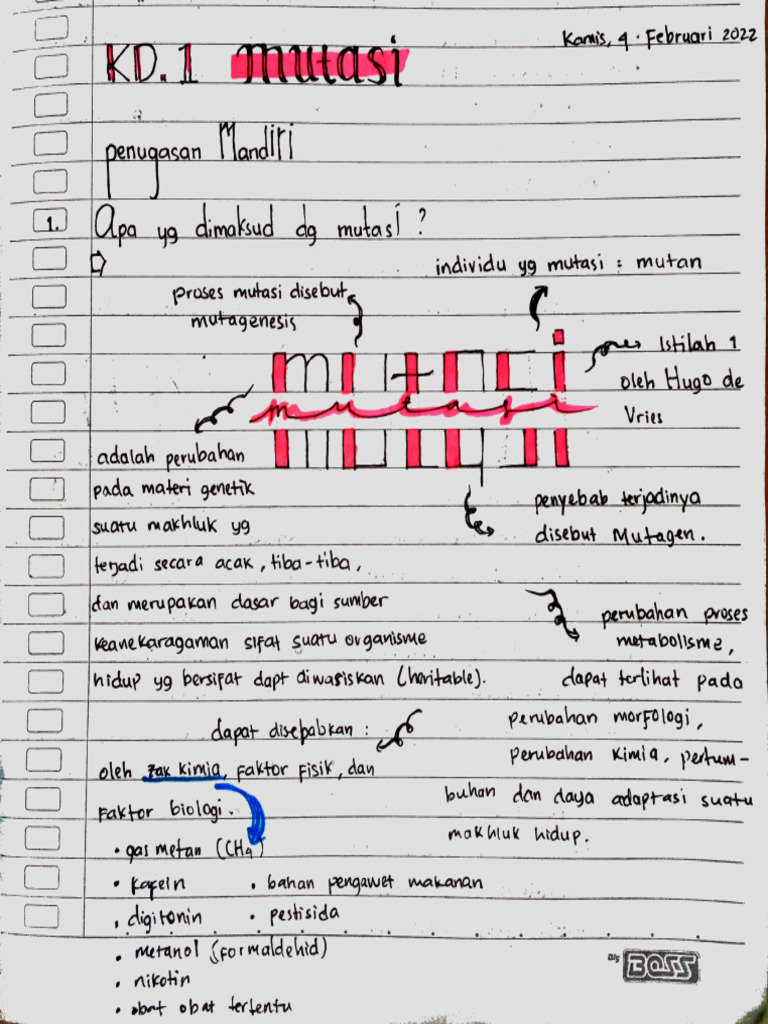 Kamis, 4 . Februari 2022
KD.1 mutasi
penugasan Mandiri
1. Apa yg dimaksud dg mutasi ?
individu yg mutasi : mutan
proses mutasi disebut
mutagenesis
Istilah 1
oleh Hugo de
Vries
mutasi
mutasi
adalah perubahan
pada materi genetik
suatu makhluk yg
terjadi secara acak, tiba-tiba,
dan merupakan dasar bagi sumber
keanekaragaman sifat suatu organisme
hidup yg bersifat dapt diwariskan (heritable).
penyebab terjadinya
disebut Mutagen.
perubahan proses
metabolisme,
dapat terlihat pada
perubahan morfologi,
perubahan kimia, pertum-
buhan dan daya adaptasi suatu
makhluk hidup.
dapat disebabkan :
oleh zak kimia, faktor fisik, dan
faktor biologi.
• gas metan (CH4)
• kafein
• bahan pengawet makanan
• digitonin
• pestisida
• metanol (formaldehid)
• nikotin
• obat obat tertentu
Big BOSS